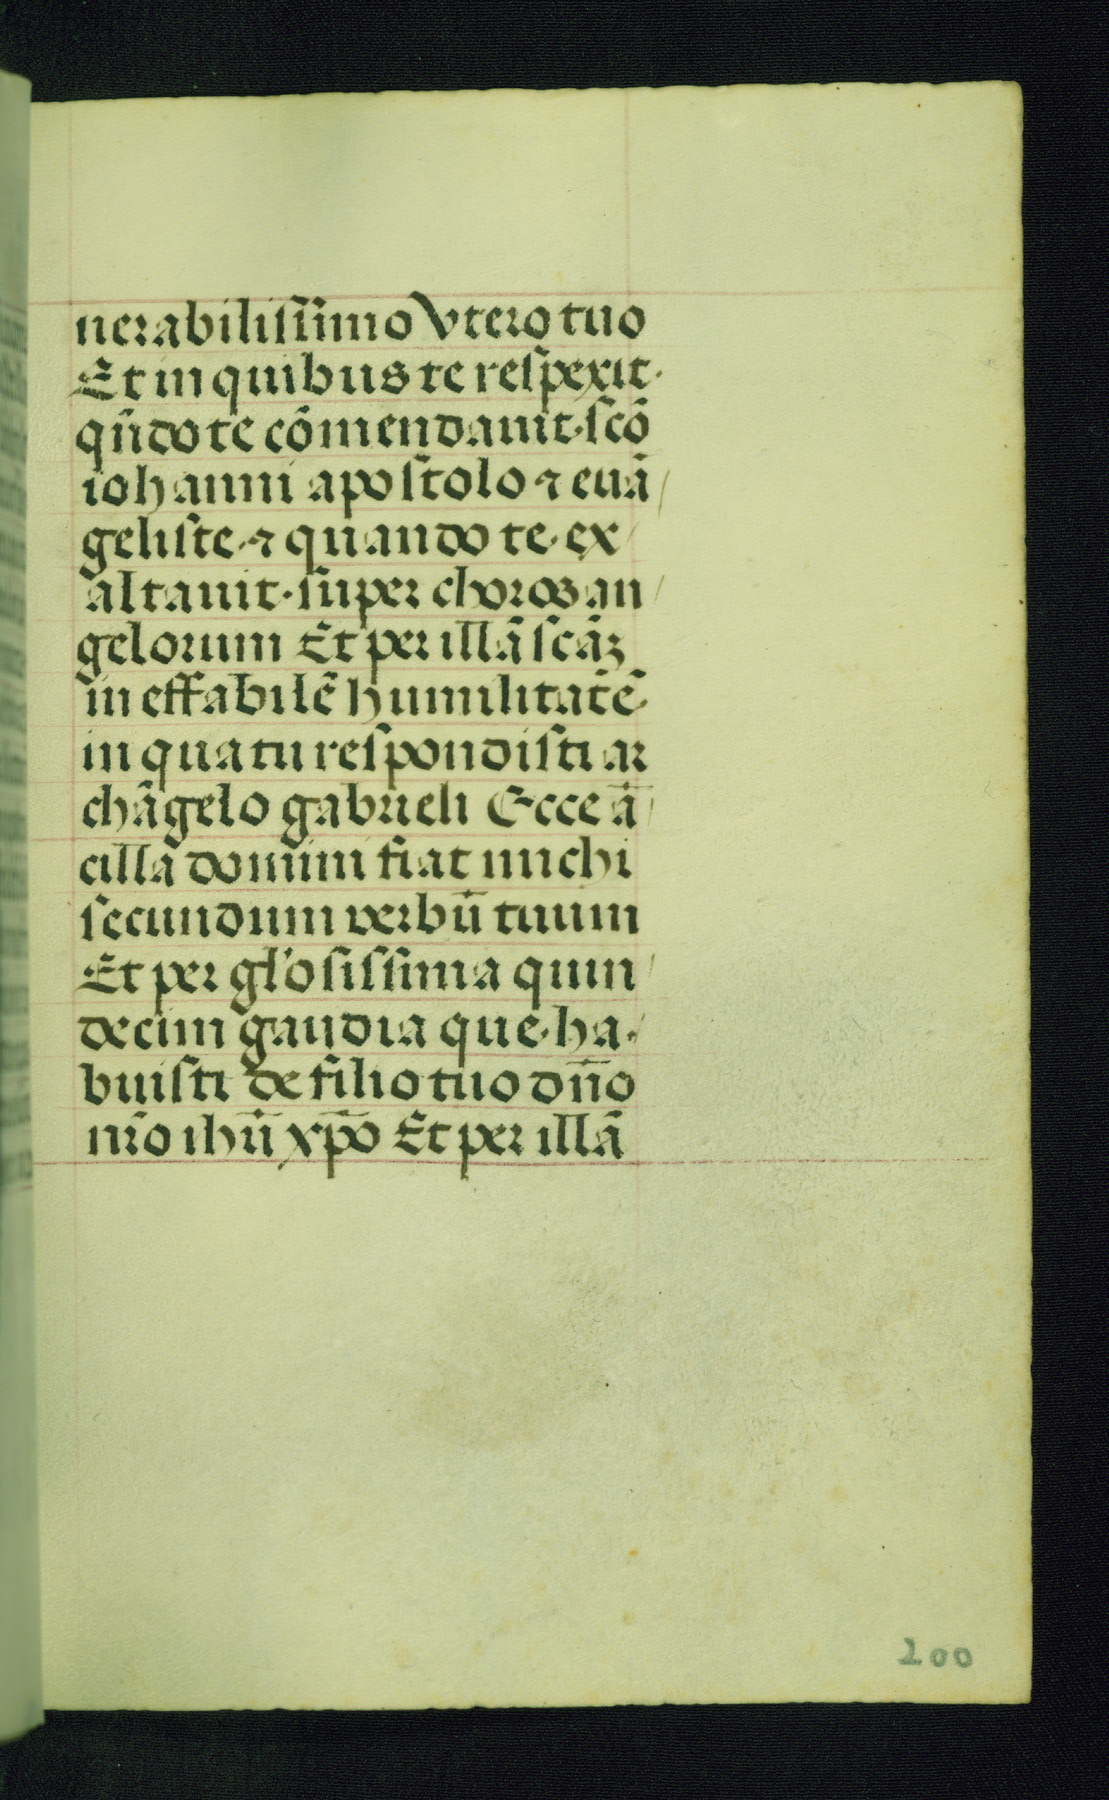 nerabiliſſimo vtero tuo
Et in quibus te reſpexit·
qn̄do te cōmendauit·ſcō
iohanni apoſtolo ⁊ euā/
geliſte·⁊ quando te·ex/
altauit·ſuper choros an/
gelorum Et per illā ſcāꝫ
in effabilē humilitatē·
in qua tu reſpondiſti ar
chāgelo gabrieli Ecce ā/
cilla domini fiat michi
ſecundum verbū tuum
Et per gl'oſiſſima quin/
decim gaudia que·ha·/
buiſti de filio tuo dn̄o
nr̄o ihū xp̄o Et per illā
200